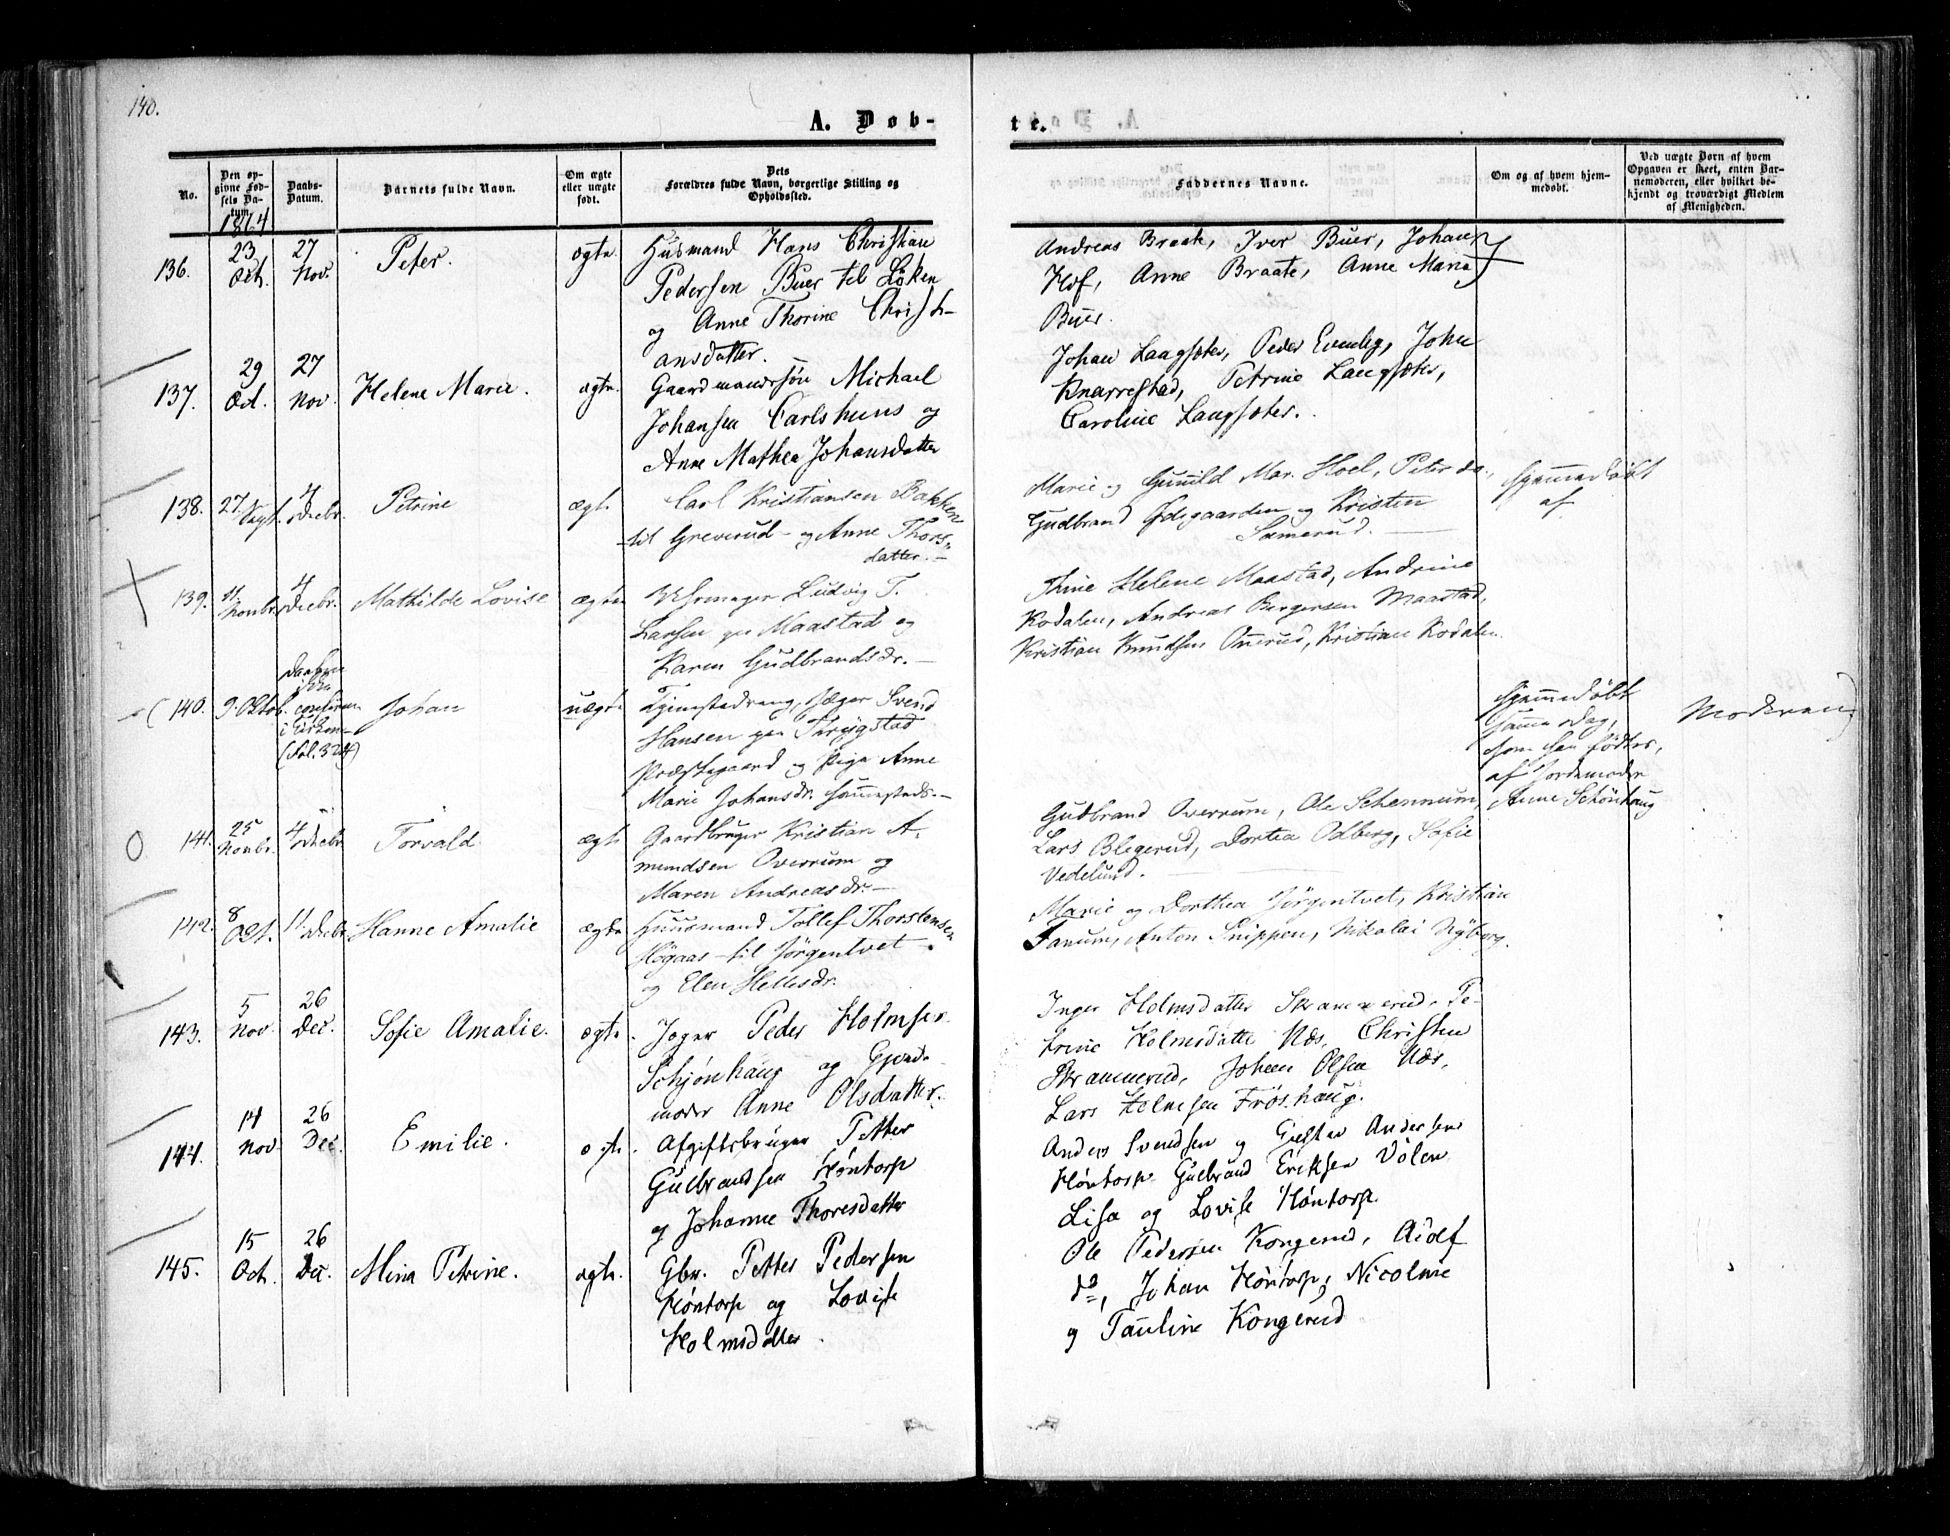 140.
A. Døb-
te.
No.
Den op-
givne Fød-
sels Da-
tum.
Daabs-
Datum.
Barnets fulde Navn.
Om ægte
eller uægte
født.
Dets
Forældres fulde Navn, borgerlige Stilling og
Opholdssted.
Faddernes Navne.
Om og af hvem hjem-
medøbt.
Ved uægte Børn af hvem
Opgaven er skeet, enten Bar-
nemoderen, eller hvilket be-
kjendt og troværdigt Medlem
af Menigheden.
1864
136.
23
Oct.
27
Nov.
Peter.
ægte.
Husmand Hans Christian
Pedersen Buer til Löken
og Anne Thorine Christi-
ansdatter.
Andreas Braate, Iver Buer, Johan
Hof, Anne Braate, Anne Maria
Buer.
137.
29
Oct.
27
Nov.
Helene Marie.
ægte.
Gaardmandssøn Michael
Johansen Carlshuus og
Anne Mathea Johansdatter
Johan Laagsæter, Peder Evenby, John
Knarrestad, Petrine Langsæter,
Caroline Langsæter.
138.
27
4
Decbr.
Petrine
ægte
Carl Kristiansen Bakken
til Greverud og Anne Thors-
datter.
Marie og Gunild Mar. Hoel, Peter do.,
Gudbrand Ødegaarden og Kristen
Samerud.
Hjemmedøbt
af
139.
11.
Novbr.
4
Decbr.
Mathilde Lovise
ægte
Ludvig T.
Larsen paa Maastad og
Karen Gudbrandsdr.
Thine Helene Maastad, Andrine
Kodalen, Andreas Bergersen Maastad,
Kristian Knudsen Onerud, Kristian Kodalen.
140.
9. Oktob.
Daaben
ikke
confirm
i Kirken
(Fol. 324)
Johan
uægte
Tjenestedreng, Jæger Svend
Hansen paa Thrygstad
Præstegaard og Pige Anne
Marie Johansdr. sammesteds.
Hjemmedøbt
samme Dag,
som han födtes,
af Jordemoder
Anne Schönhaug
Moderen
141.
25
Novbr.
4
Decbr.
Torvald
ægte
Gaardbruger Kristian A-
mundsen Overrum og
Maren Andreasdr.
Gudbrand Overrum, Ole Schennum,
Lars Blegerud, Dortea Odberg, Sofie
Vedelund.
142.
8
Okt.
11
Decbr.
Hanne Amalie
ægte
Huusmand Tollef Thorstensen
Høgaas til Jørgentvet
og Elen Hellesdr.
Marie og Dorthea Jörgentvet, Kristian
Fanum, Anton Snippen, Nikolai Nyborg.
143.
5
Nov.
26
Dec.
Sofie Amalie.
ægte.
Jæger Peder Holmsen
Schjønhaug og Gjorde-
moder Anne Olsdatter.
Inger Holmsdatter Skrammerud. Pe-
trine Holmsdatter Næs, Christen
Skrammerud, Johan Olsen Næs,
Lars Holmsen Fröshaug.
144.
14
Nov.
26
Dec.
Emilie.
ægte.
Afgiftsbruger Petter
Gulbrandsen Høntorp
og Johanne Thoresdatter
Anders Svendsen og Gustav Andersen
Høntorp Gulbrand Eriksen Volen
Lisa og Lovise Høntorp.
145.
15
Oct.
26
Dec.
Mina Petrine.
ægte.
Gbr. Petter Pedersen
Høntorp og Lovise
Holmsdatter.
Ole Pedersen Kongerud, Adolf
do, Johan Høntorp, Nicoline
og Pauline Kongerud